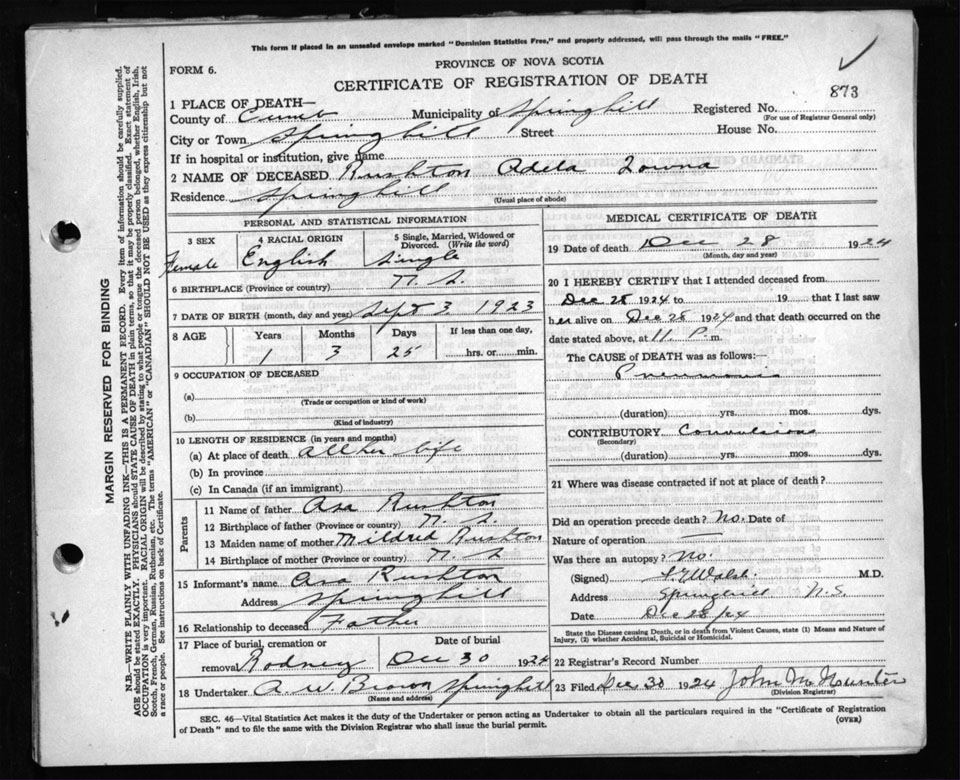 This form if placed in an unsealed envelope marked "Dominion Statistics Free," and properly addressed, will pass through the mails "FREE."
PROVINCE OF NOVA SCOTIA
FORM 6.
CERTIFICATE OF REGISTRATION OF DEATH
873
1 PLACE OF DEATH—
County of Cumb Municipality of Springhill Registered No.
(For use of Registrar General only)
City or Town Springhill Street House No.
If in hospital or institution, give name
2 NAME OF DECEASED Rushton Adela
Residence Springhill (Usual place of abode)
PERSONAL AND STATISTICAL INFORMATION
3 SEX 4 RACIAL ORIGIN 5 Single, Married, Widowed or Divorced. (Write the word)
Female English Single
6 BIRTHPLACE (Province or country) N. S.
7 DATE OF BIRTH (month, day and year) Sept 3, 1923
8 AGE Years Months Days If less than one day,
1 3 25 hrs. or min.
9 OCCUPATION OF DECEASED
(a)
(Trade or occupation or kind of work)
(b)
(Kind of industry)
10 LENGTH OF RESIDENCE (in years and months)
(a) At place of death all her life
(b) In province
(c) In Canada (if an immigrant)
Parents
11 Name of father Asa Rushton
12 Birthplace of father (Province or country) N. S.
13 Maiden name of mother Mildred Rushton
14 Birthplace of mother (Province or country) N. S.
15 Informant's name Asa Rushton
Address Springhill
16 Relationship to deceased Father
17 Place of burial, cremation or Date of burial
removal Rodney Dec 30 1924
18 Undertaker A. W. Brown Springhill
(Name and address)
MEDICAL CERTIFICATE OF DEATH
19 Date of death Dec 28 1924
(Month, day and year)
20 I HEREBY CERTIFY that I attended deceased from
Dec 28 1924 to 19 that I last saw
her alive on Dec 28 1924 and that death occurred on the
date stated above, at 11. P m.
The CAUSE OF DEATH was as follows:
Pneumonia
(duration) yrs. mos. dys.
CONTRIBUTORY Convulsions
(Secondary)
(duration) yrs. mos. dys.
21 Where was disease contracted if not at place of death?
Did an operation precede death? No. Date of
Nature of operation —
Was there an autopsy? No.
(Signed) Walsh M.D.
Address Springhill N.S.
Date Dec 28/24
State the Disease causing Death, or in death from Violent Causes, state (1) Means and Nature of
Injury, (2) whether Accidental, Suicidal or Homicidal.
22 Registrar's Record Number
23 Filed Dec 30 1924 John M
(Division Registrar)
SEC. 46—Vital Statistics Act makes it the duty of the Undertaker or person acting as Undertaker to obtain all the particulars required in the "Certificate of Registration
of Death" and to file the same with the Division Registrar who shall issue the burial permit. (OVER)
MARGIN RESERVED FOR BINDING
N.B.—WRITE PLAINLY WITH UNFADING INK—THIS IS A PERMANENT RECORD. Every item of information should be carefully supplied.
AGE should be stated EXACTLY. PHYSICIANS should STATE CAUSE OF DEATH in plain terms, so that it may be properly classified. Exact statement of
OCCUPATION is very important. RACIAL ORIGIN will be described by stating to what people or tongue the deceased person belonged, whether English, Irish,
Scotch, French, German, Russian, Ruthenian, etc. The terms "AMERICAN" or "CANADIAN" SHOULD NOT BE USED as they express citizenship but not
a race or people. See instructions on back of Certificate.